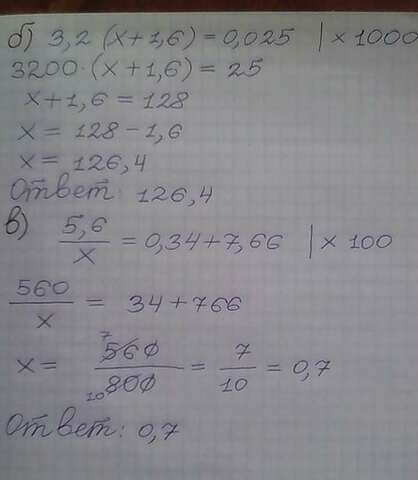 б) 3,2 (x+1,6) = 0,025 | × 1000
3200·(x+1,6) = 25
x+1,6 = 128
x = 128-1,6
x = 126,4
Ответ: 126,4
в) 5,6/x = 0,34+7,66 | × 100
560/x = 34+766
x = 560/800 = 7/10 = 0,7
7
10
Ответ: 0,7